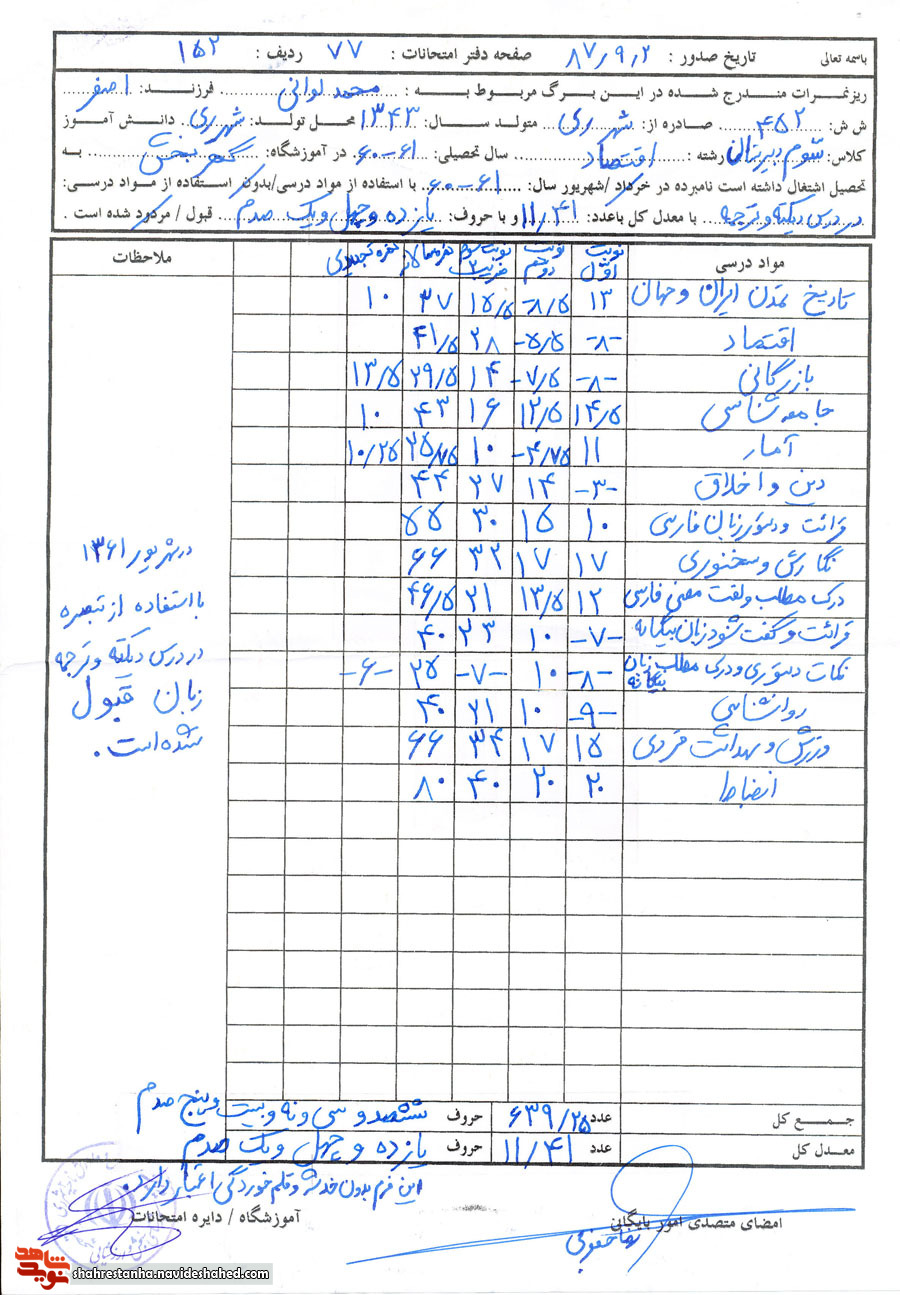 باسمه تعالی تاریخ صدور : ۸۷/۹/۲ صفحه دفتر امتحانات : ۷۷ ردیف : ۱۵۲
ریزنمرات مندرج شده در این برگ مربوط به : محمد لوانی فرزند : اصغر
ش ش : ۴۵۲ صادره از : شهر ری متولد سال : ۱۳۴۳ محل تولد : شهر ری دانش آموز
کلاس : سوم دبیرستان رشته : اقتصاد سال تحصیلی : ۶۱-۶۰ در آموزشگاه : گهر بخش به
تحصیل اشتغال داشته است نامبرده در خرداد / شهریور سال : ۶۱-۶۰ با استفاده از مواد درسی/بدون استفاده از مواد درسی :
در درس دیکته و ترجمه با معدل کل باعدد : ۱۱/۴۱ و با حروف : یازده و چهل و یک صدم قبول / مردود شده است .
مواد درسی نوبت اول نوبت دوم نوبت سوم ضریب ۲ نمره سالانه نمره تجدیدی ملاحظات
تاریخ تمدن ایران و جهان ۱۳ -۸/۵ ۱۵/۵ ۳۷ ۱۰
اقتصاد -۸- -۵/۵ ۲۸ ۴۱/۵
بازرگانی -۸- -۷/۵ ۱۴ ۲۹/۵ ۱۳/۵
جامعه شناسی ۱۴/۵ ۱۲/۵ ۱۶ ۴۳ ۱۰
آمار ۱۱ -۴/۷۵ ۱۰ ۲۵/۷۵ ۱۰/۲۵
دین و اخلاق -۳- ۱۴ ۲۷ ۴۴
قرائت و دستور زبان فارسی ۱۰ ۱۵ ۳۰ ۵۵
نگارش و سخنوری ۱۷ ۱۷ ۳۲ ۶۶
درک مطلب و لغت معنی فارسی ۱۲ ۱۳/۵ ۲۱ ۴۶/۵
قرائت و گفت شنود زبان بیگانه -۷- ۱۰ ۲۳ ۴۰
نکات دستوری و درک مطلب زبان بیگانه -۸- ۱۰ -۷- ۲۵ -۶-
روانشناسی -۹- ۱۰ ۲۱ ۴۰
ورزش و بهداشت فردی ۱۵ ۱۷ ۳۴ ۶۶
انضباط ۲۰ ۲۰ ۴۰ ۸۰
در شهریور ۱۳۶۱
با استفاده از تبصره
در درس دیکته و ترجمه
زبان قبول
شده است.
جمع کل عدد ۶۳۹/۲۵ حروف ششصد و سی و نه و بیست و پنج صدم
معدل کل عدد ۱۱/۴۱ حروف یازده و چهل و یک صدم
این فرم بدون خدشه و قلم خوردگی اعتبار دارد.
امضای متصدی امور بایگانی آموزشگاه / دایره امتحانات
نوید شاهد
shahrestanha.navideshahed.com